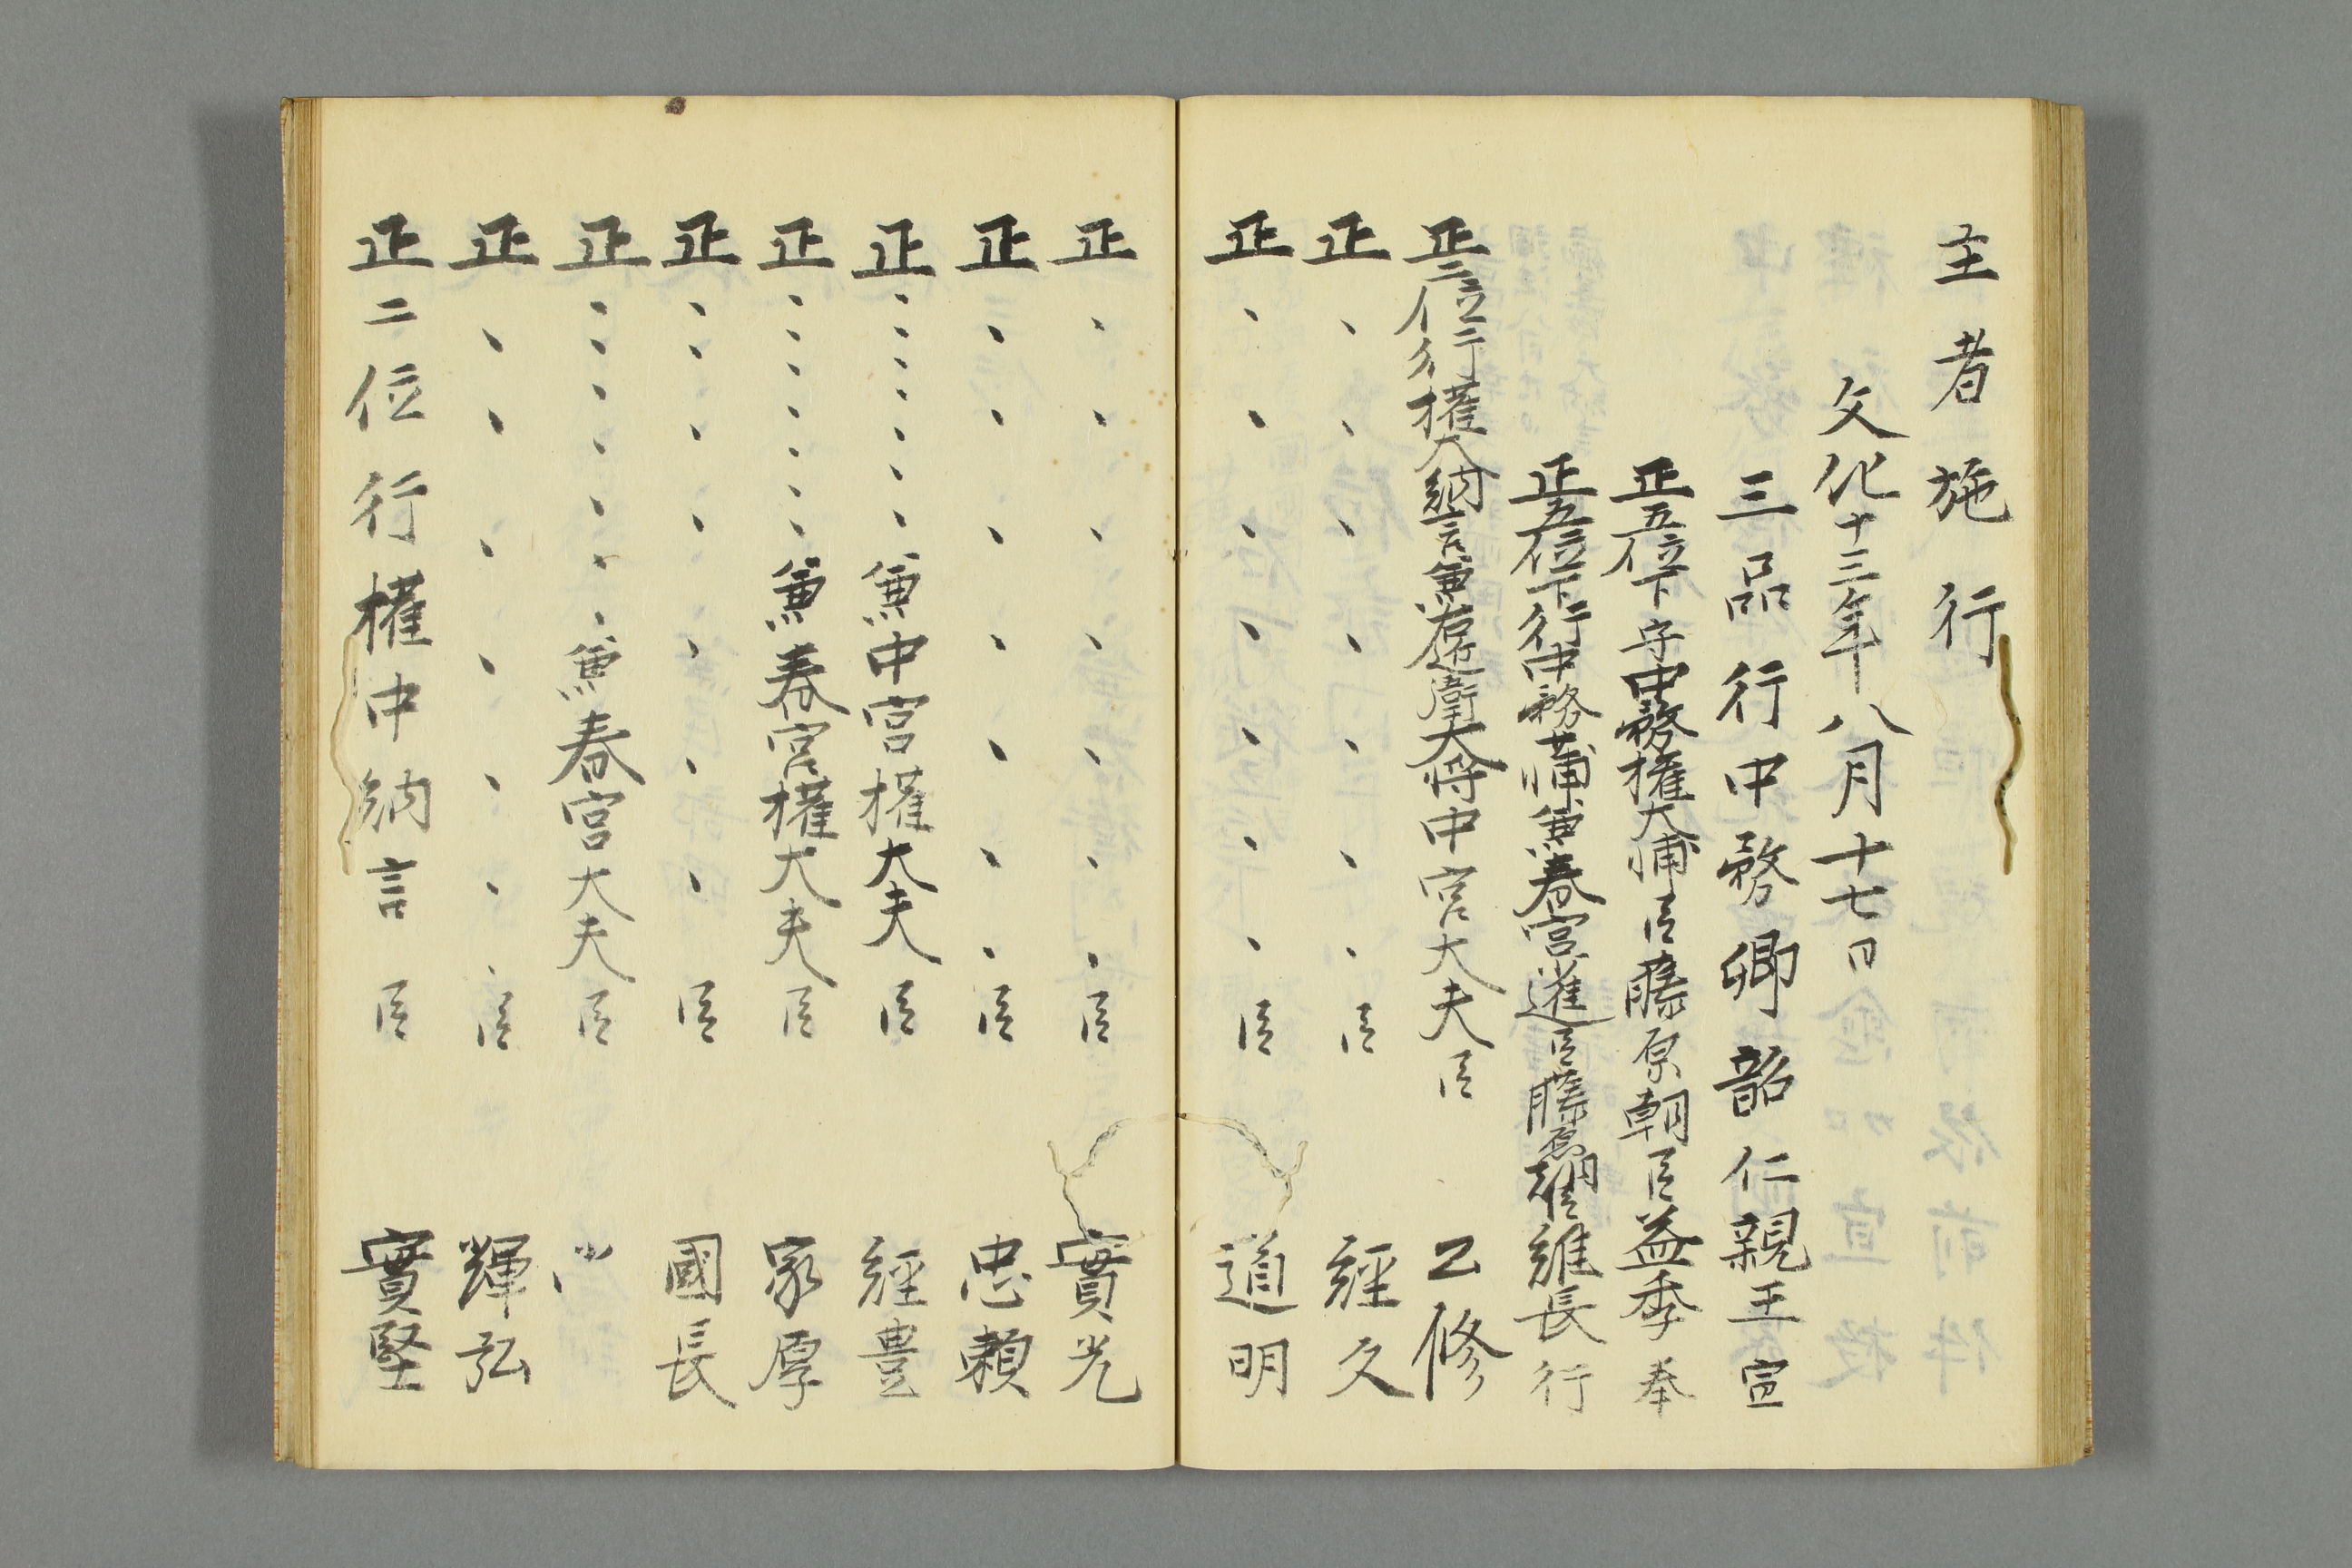 主者施行
文化十三年八月十七日
三品行中務卿韶仁親王宣
正五位下守中務権大輔臣藤原朝臣益季奉
正五位下行中務少輔兼春宮少進臣藤原朝臣維長行
正二位行権大納言兼右近衛大将中宮大夫臣 公修
正、、、、、、、臣 經久
正、、、、、、、臣 道明
正、、、、、、、臣 實光
正、、、、、、、臣 忠頼
正、、、、、、兼中宮権大夫臣 經豊
正、、、、、、兼春宮権大夫臣 家厚
正、、、、、、、臣 國長
正、、、、、、、兼春宮大夫臣
正、、、、、、、臣 輝弘
正二位行権中納言臣 實堅